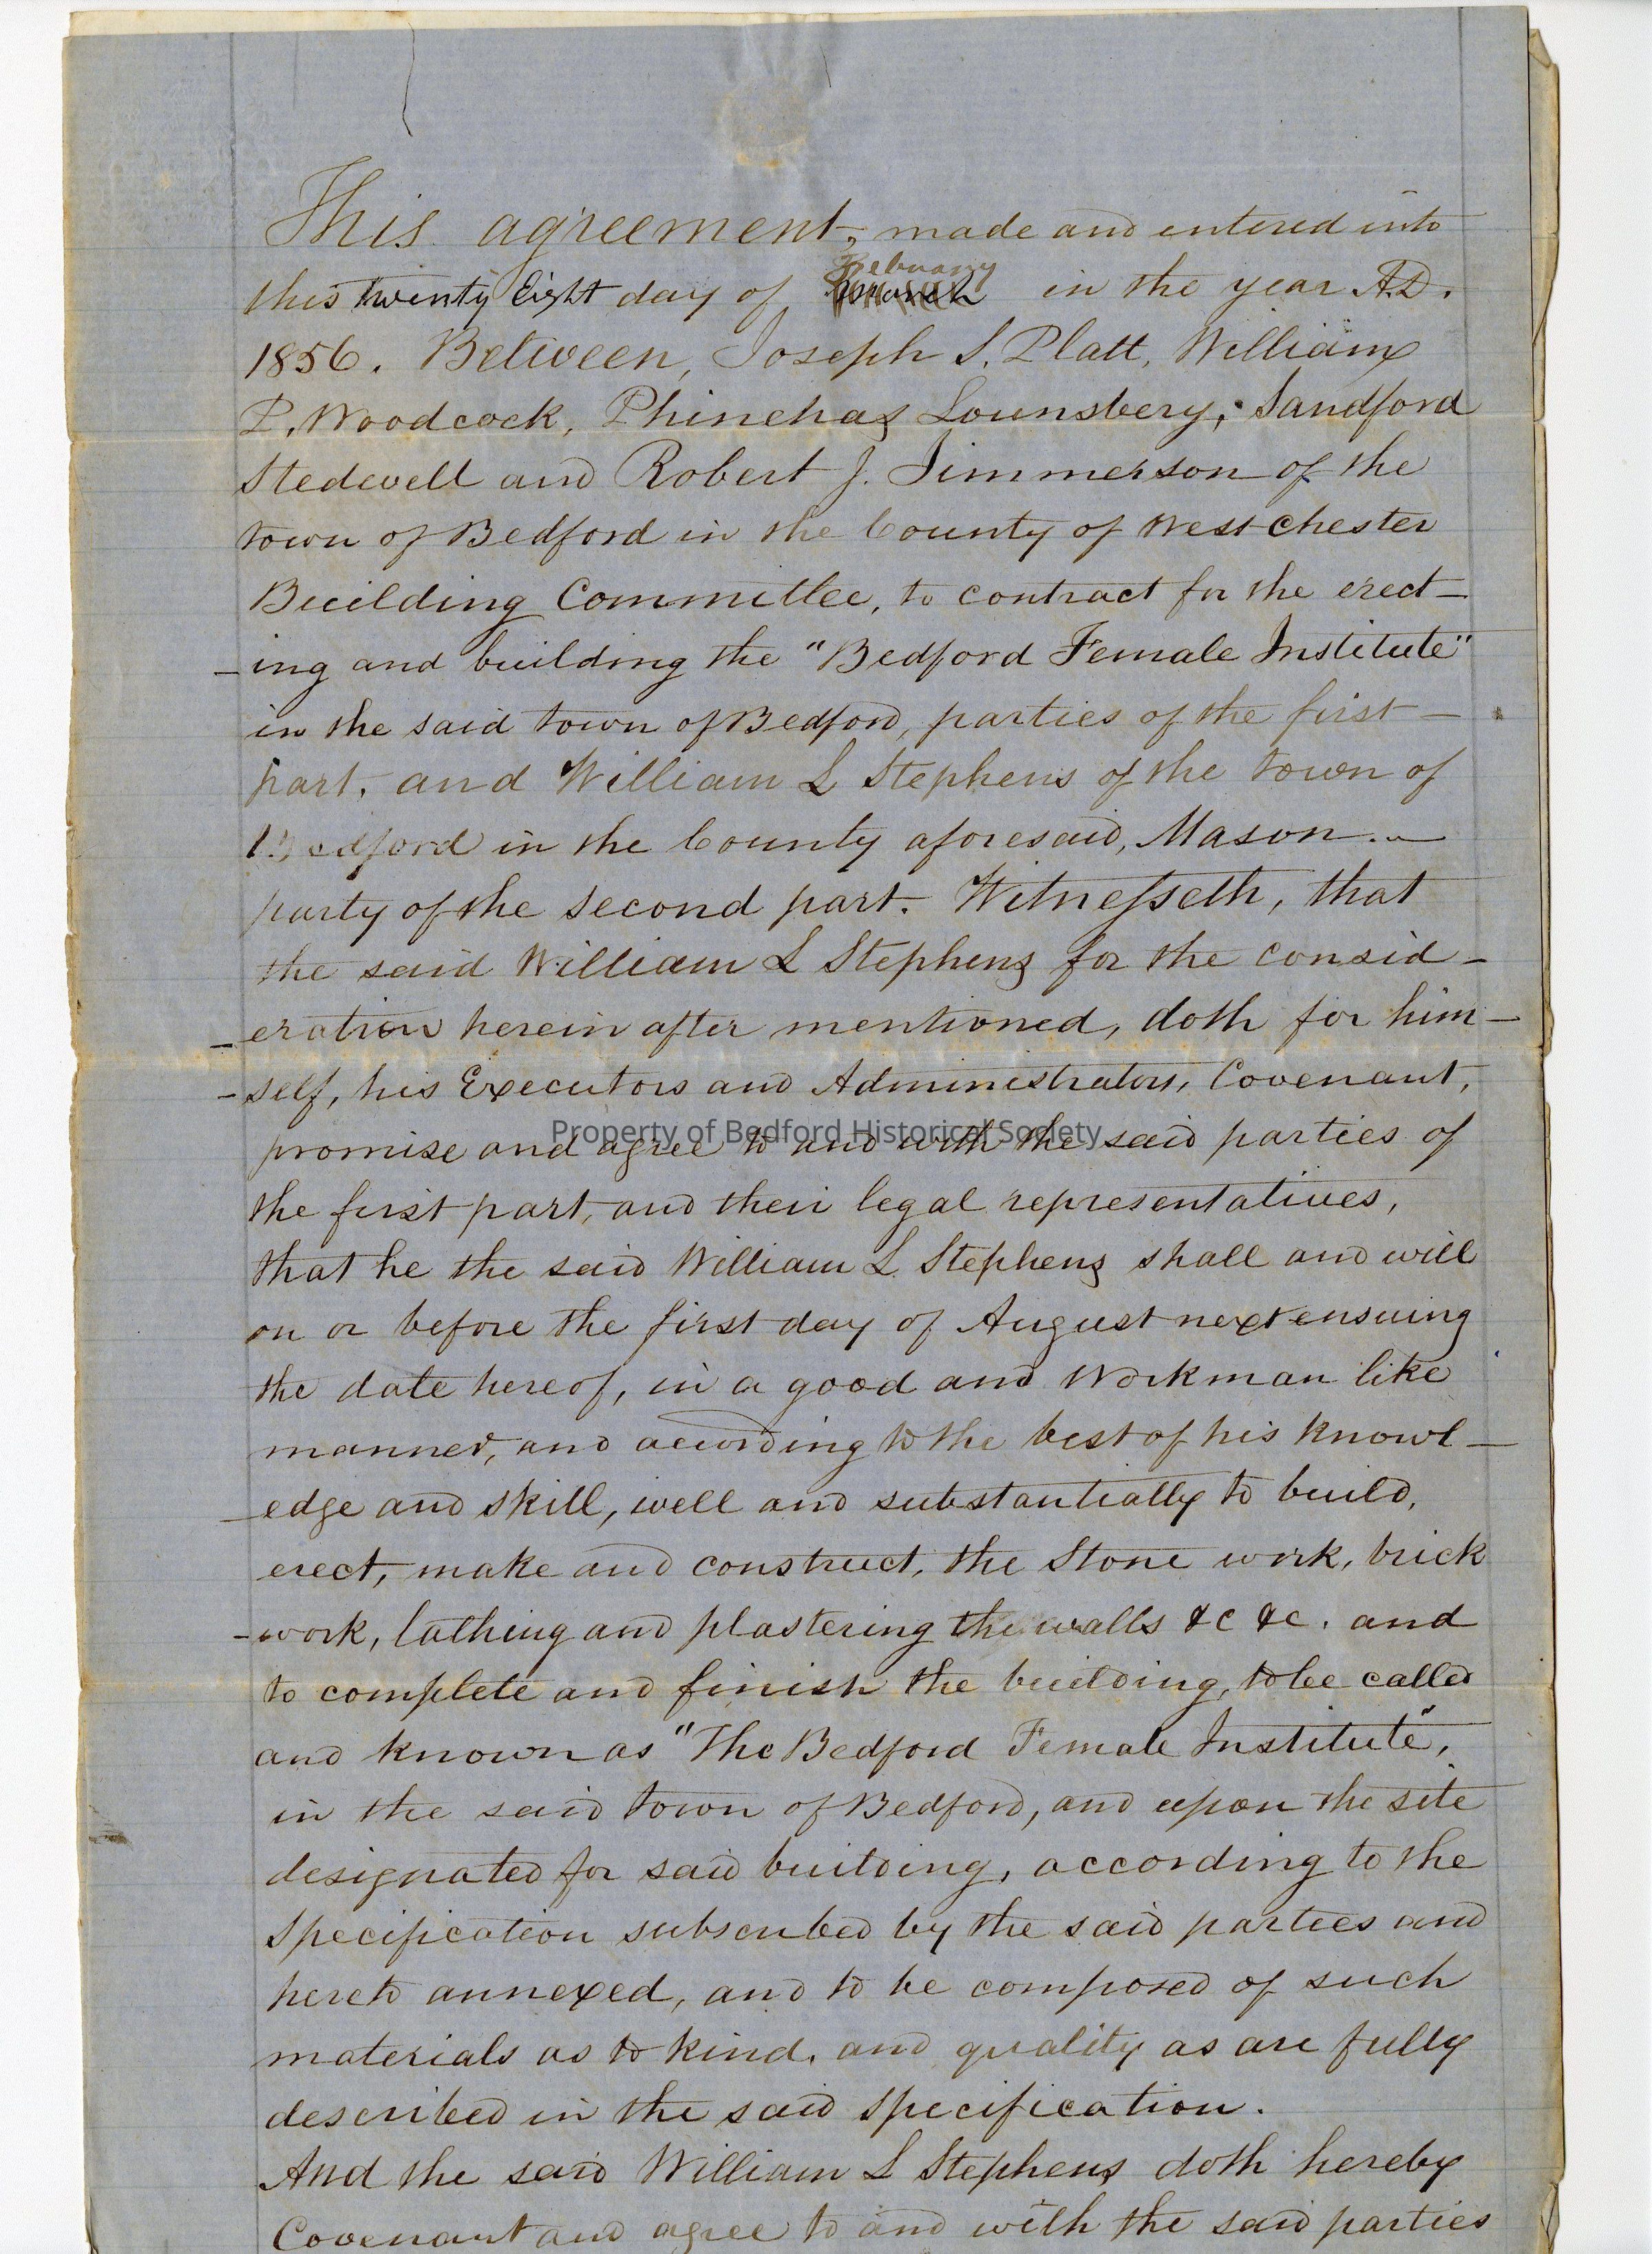 This agreement, made and entered into
February
this twenty Eight day of March in the year A.D.
1856. Between, Joseph S. Platt, William
P. Woodcock, Phinehas Lounsbery, Sandford
Stedwell and Robert J. Simmerson of the
town of Bedford in the County of West chester
Building Committee, to contract for the erect-
-ing and building the "Bedford Female Institute"
in the said town of Bedford, parties of the first-
part, and William L Stephens of the town of
Bedford in the County aforesaid, Mason.
party of the second part. Witnesseth, that
the said William L Stephens for the consid-
-eration herein after mentioned, doth for him-
-self, his Executors and Administrators, Covenant,
Property of Bedford Historical Society
promise and agree to and with the said parties of
the first part, and their legal representatives,
that he the said William L. Stephens shall and will
on or before the first day of August next ensuing
the date hereof, in a good and Workman like
manner, and acording to the best of his knowl-
-edge and skill, well and substantially to build,
erect, make and construct, the Stone work, brick
-work, lathing and plastering the walls &c &c. and
to complete and finish the building, to be called
and known as "The Bedford Female Institute",
in the said town of Bedford, and upon the site
designated for said building, according to the
Specification subscribed by the said parties and
hereto annexed, and to be composed of such
materials as to kind, and quality as are fully
described in the said Specification.
And the said William L Stephens doth hereby
Covenant and agree to and with the said parties